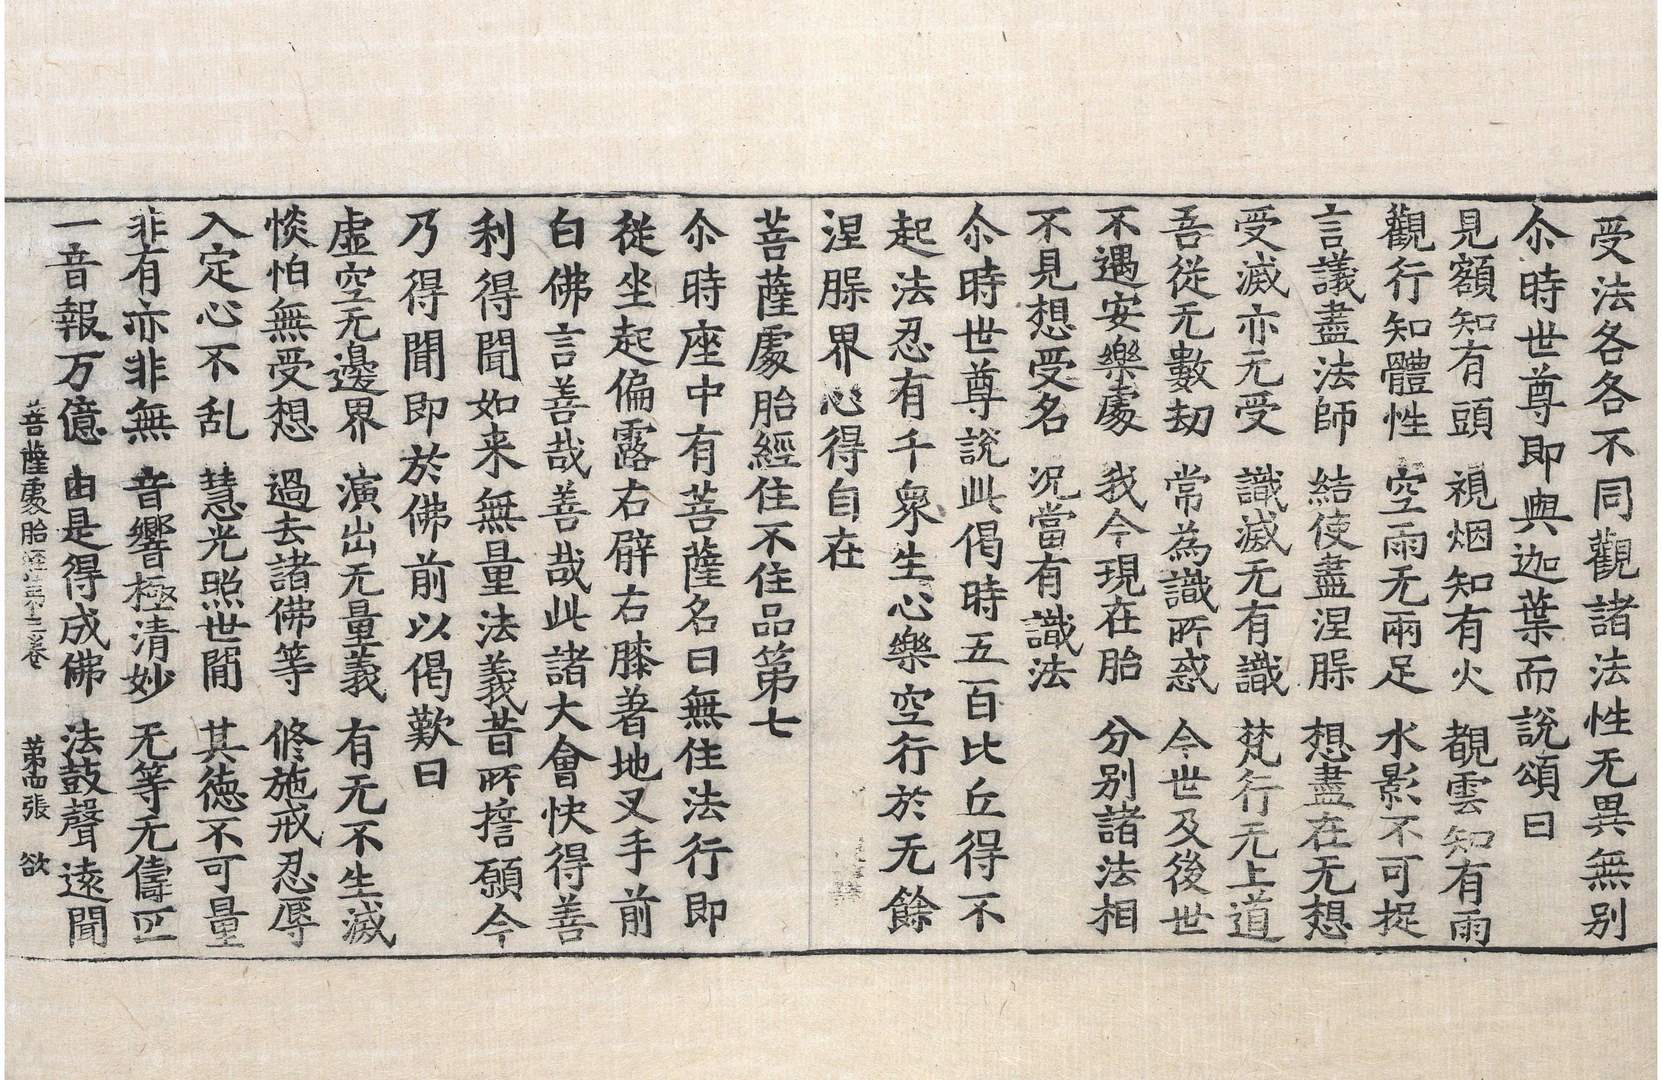 受法各各不同觀諸法性无異無别
尒時世尊即與迦葉而說頌曰
見額知有頭　視烟知有火　覩雲知有雨
觀行知體性　空雨无雨足　水影不可捉
言議盡法師　結使盡涅槃　想盡在无想
受滅亦无受　識滅无有識　梵行无上道
吾從无數劫　常為識所惑　今世及後世
不遇安樂處　我今現在胎　分别諸法相
不見想受名　况當有識法
尒時世尊說此偈時五百比丘得不
起法忍有千衆生心樂空行於无餘
涅槃界心得自在
菩薩處胎經住不住品第七
尒時座中有菩薩名曰無住法行即
從坐起偏露右臂右膝著地叉手前
白佛言善哉善哉此諸大會快得善
利得聞如来無量法義昔所誓願今
乃得聞即於佛前以偈歎曰
虛空无邊界　演出无量義　有无不生滅
惔怕無受想　過去諸佛等　修施戒忍辱
入定心不乱　慧光照世間　其德不可量
非有亦非無　音響極清妙　无等无儔匹
一音報万億　由是得成佛　法鼓聲遠聞
菩薩處胎經第二卷　第西張　欲